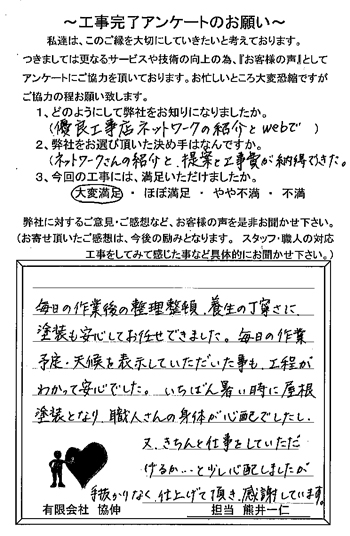 ～工事完了アンケートのお願い～
私達は、このご縁を大切にしていきたいと考えております。
つきましては更なるサービスや技術の向上の為、『お客様の声』として
アンケートにご協力を頂いております。お忙しいところ大変恐縮ですが
ご協力の程お願い致します。
1、どのようにして弊社をお知りになりましたか。
(優良工事店ネットワークの紹介とwebで)
2、弊社をお選び頂いた決め手はなんですか。
(ネットワークさんの紹介と、提案と工事費が納得できた。)
3、今回の工事には、満足いただけましたか。
大変満足 ・ ほぼ満足 ・ やや不満 ・ 不満
弊社に対するご意見・ご感想など、お客様の声を是非お聞かせ下さい。
(お寄せ頂いたご感想は、今後の励みとなります。 スタッフ・職人の対応
工事をしてみて感じた事など具体的にお聞かせ下さい。)
毎日の作業後の整理整頓、養生の丁寧さに
塗装も安心してお任せできました。毎日の作業
予定・天候を表示していただいた事も、工程が
わかって安心でした。いちばん暑い時に屋根
塗装となり、職人さんの身体が心配でしたし、
又、きちんと仕事をしていただ
けるか…と少し心配しましたが
手抜かりなく、仕上げて頂き、感謝しています。
有限会社 協伸 担当 熊井一仁